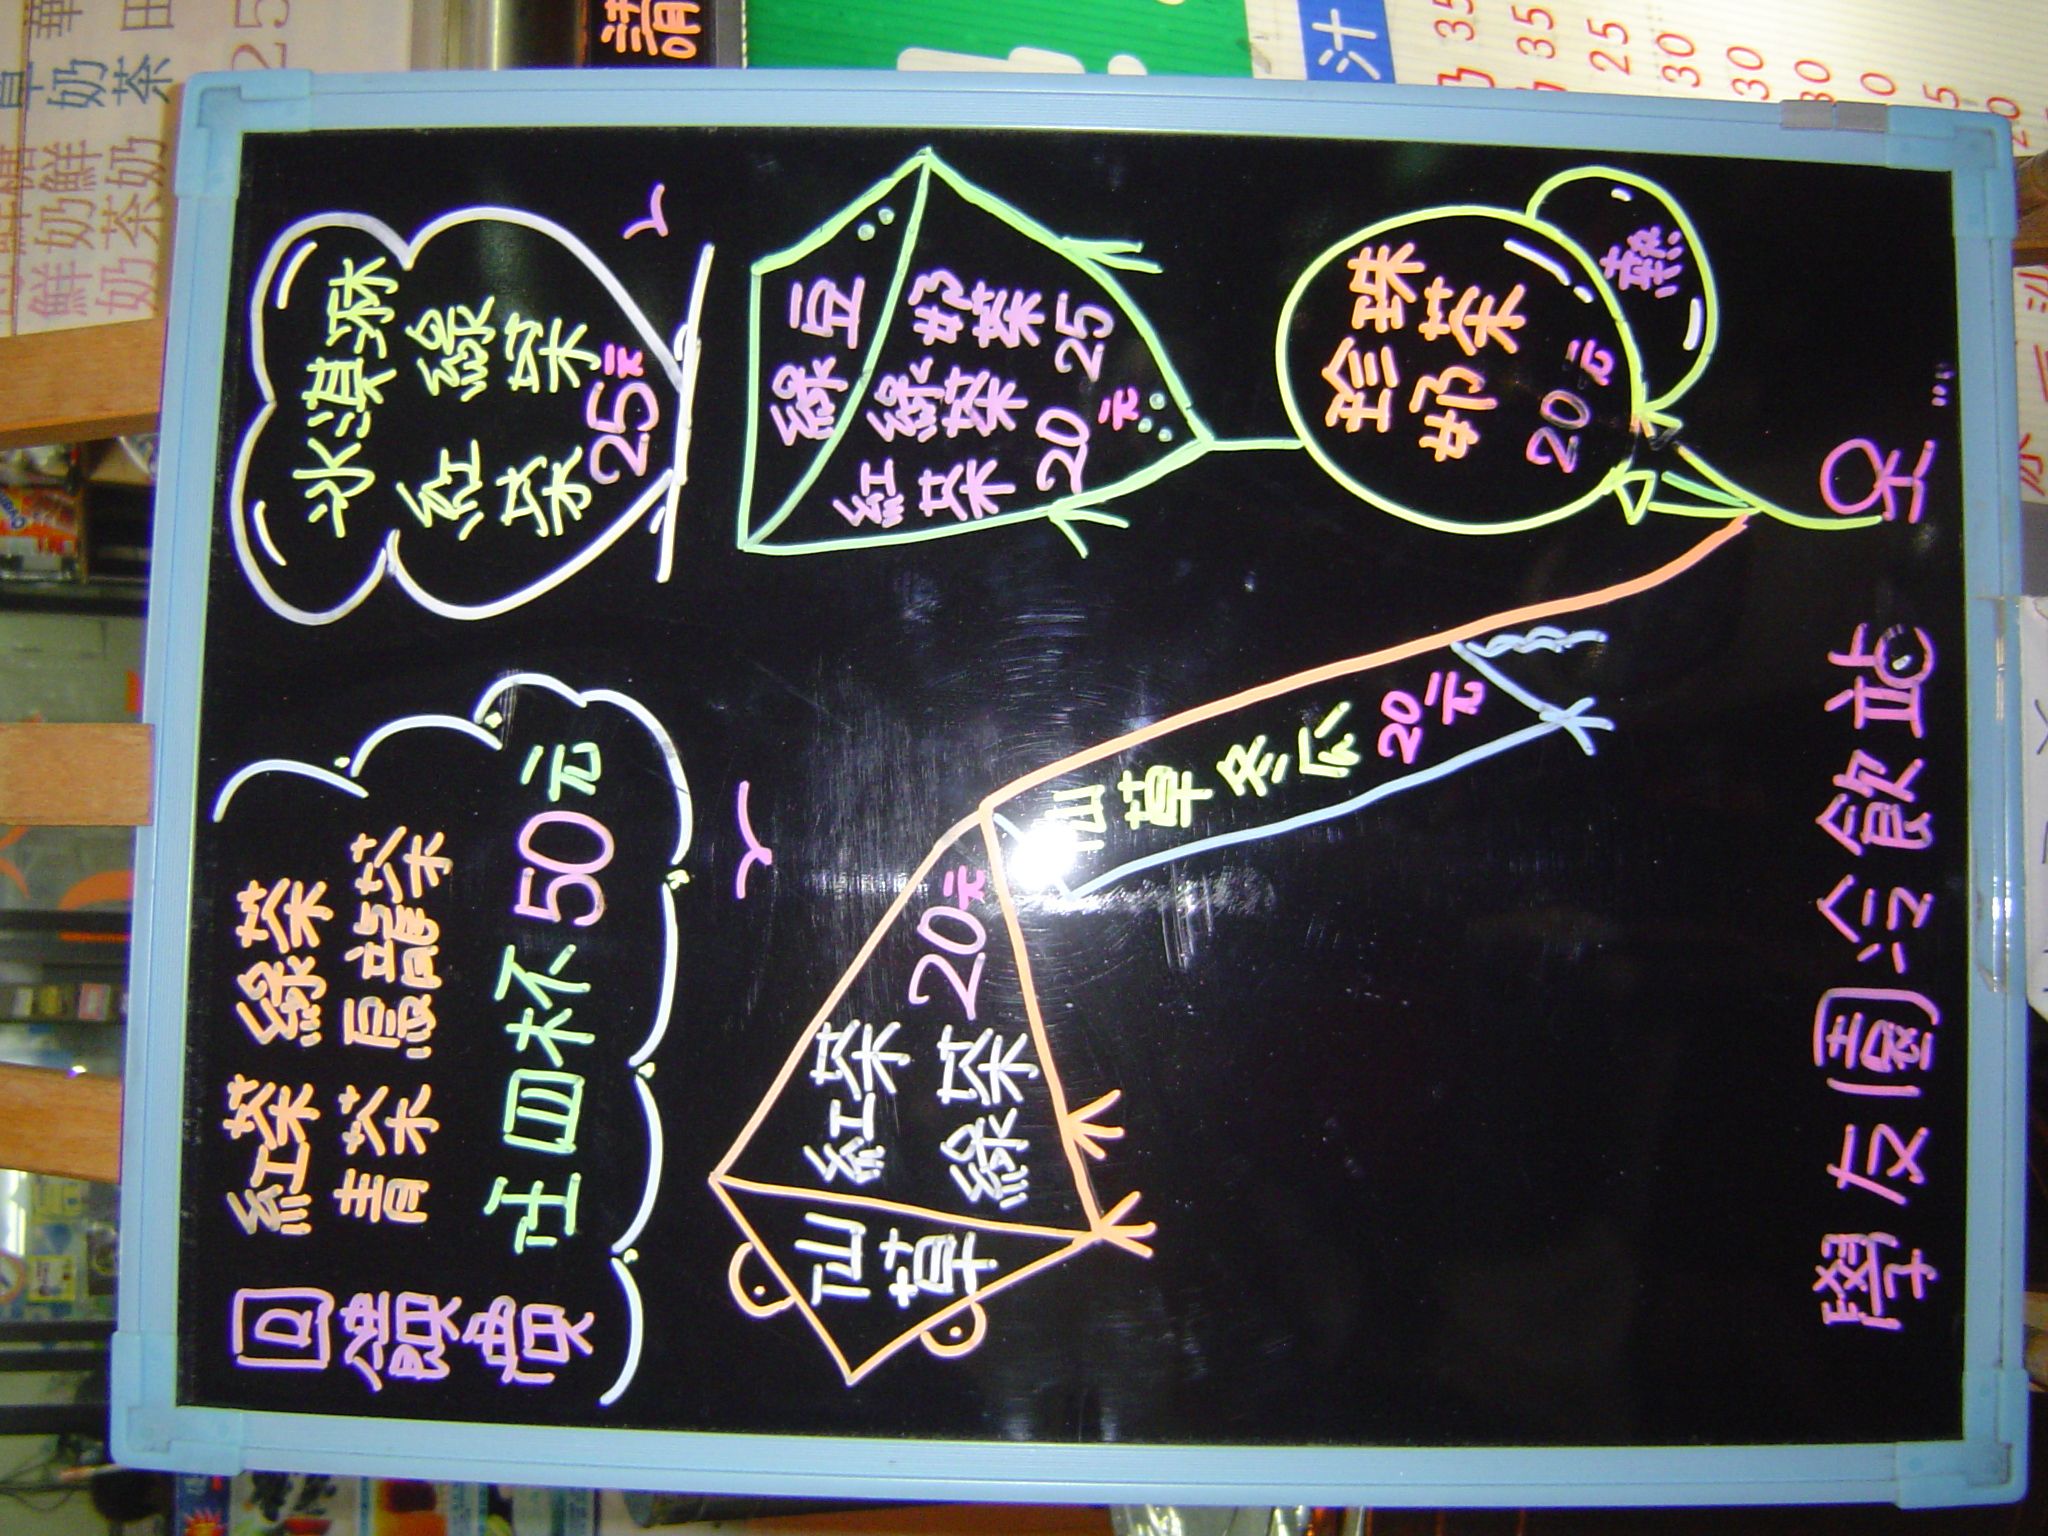 回饋
紅茶 綠茶
青茶 烏龍茶
任四杯50元
冰淇淋
紅茶 綠茶
25元
仙草
紅茶
綠茶
20元
綠豆
紅茶 綠茶 奶茶
20 25元
仙草冬瓜
20元
珍珠
奶茶
20元
熱
學友園冷飲站
請
汁
35
35
25
30
30